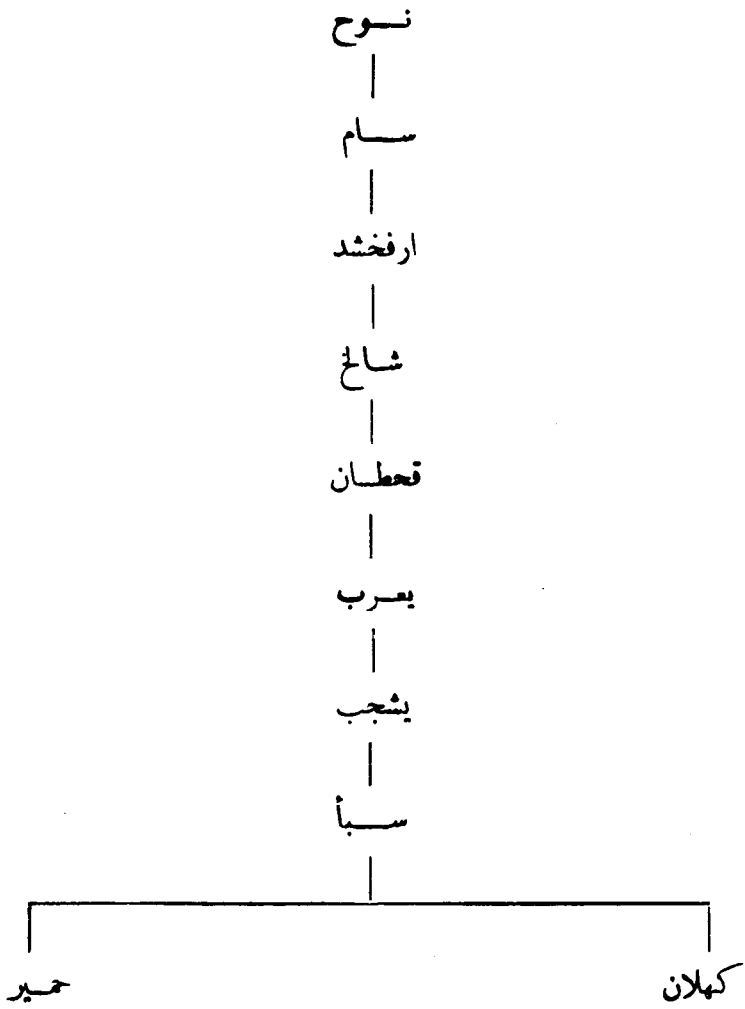 نوح
سام
ارفخشد
شالخ
قحطان
يعرب
يشجب
سبأ
كهلان
حمير